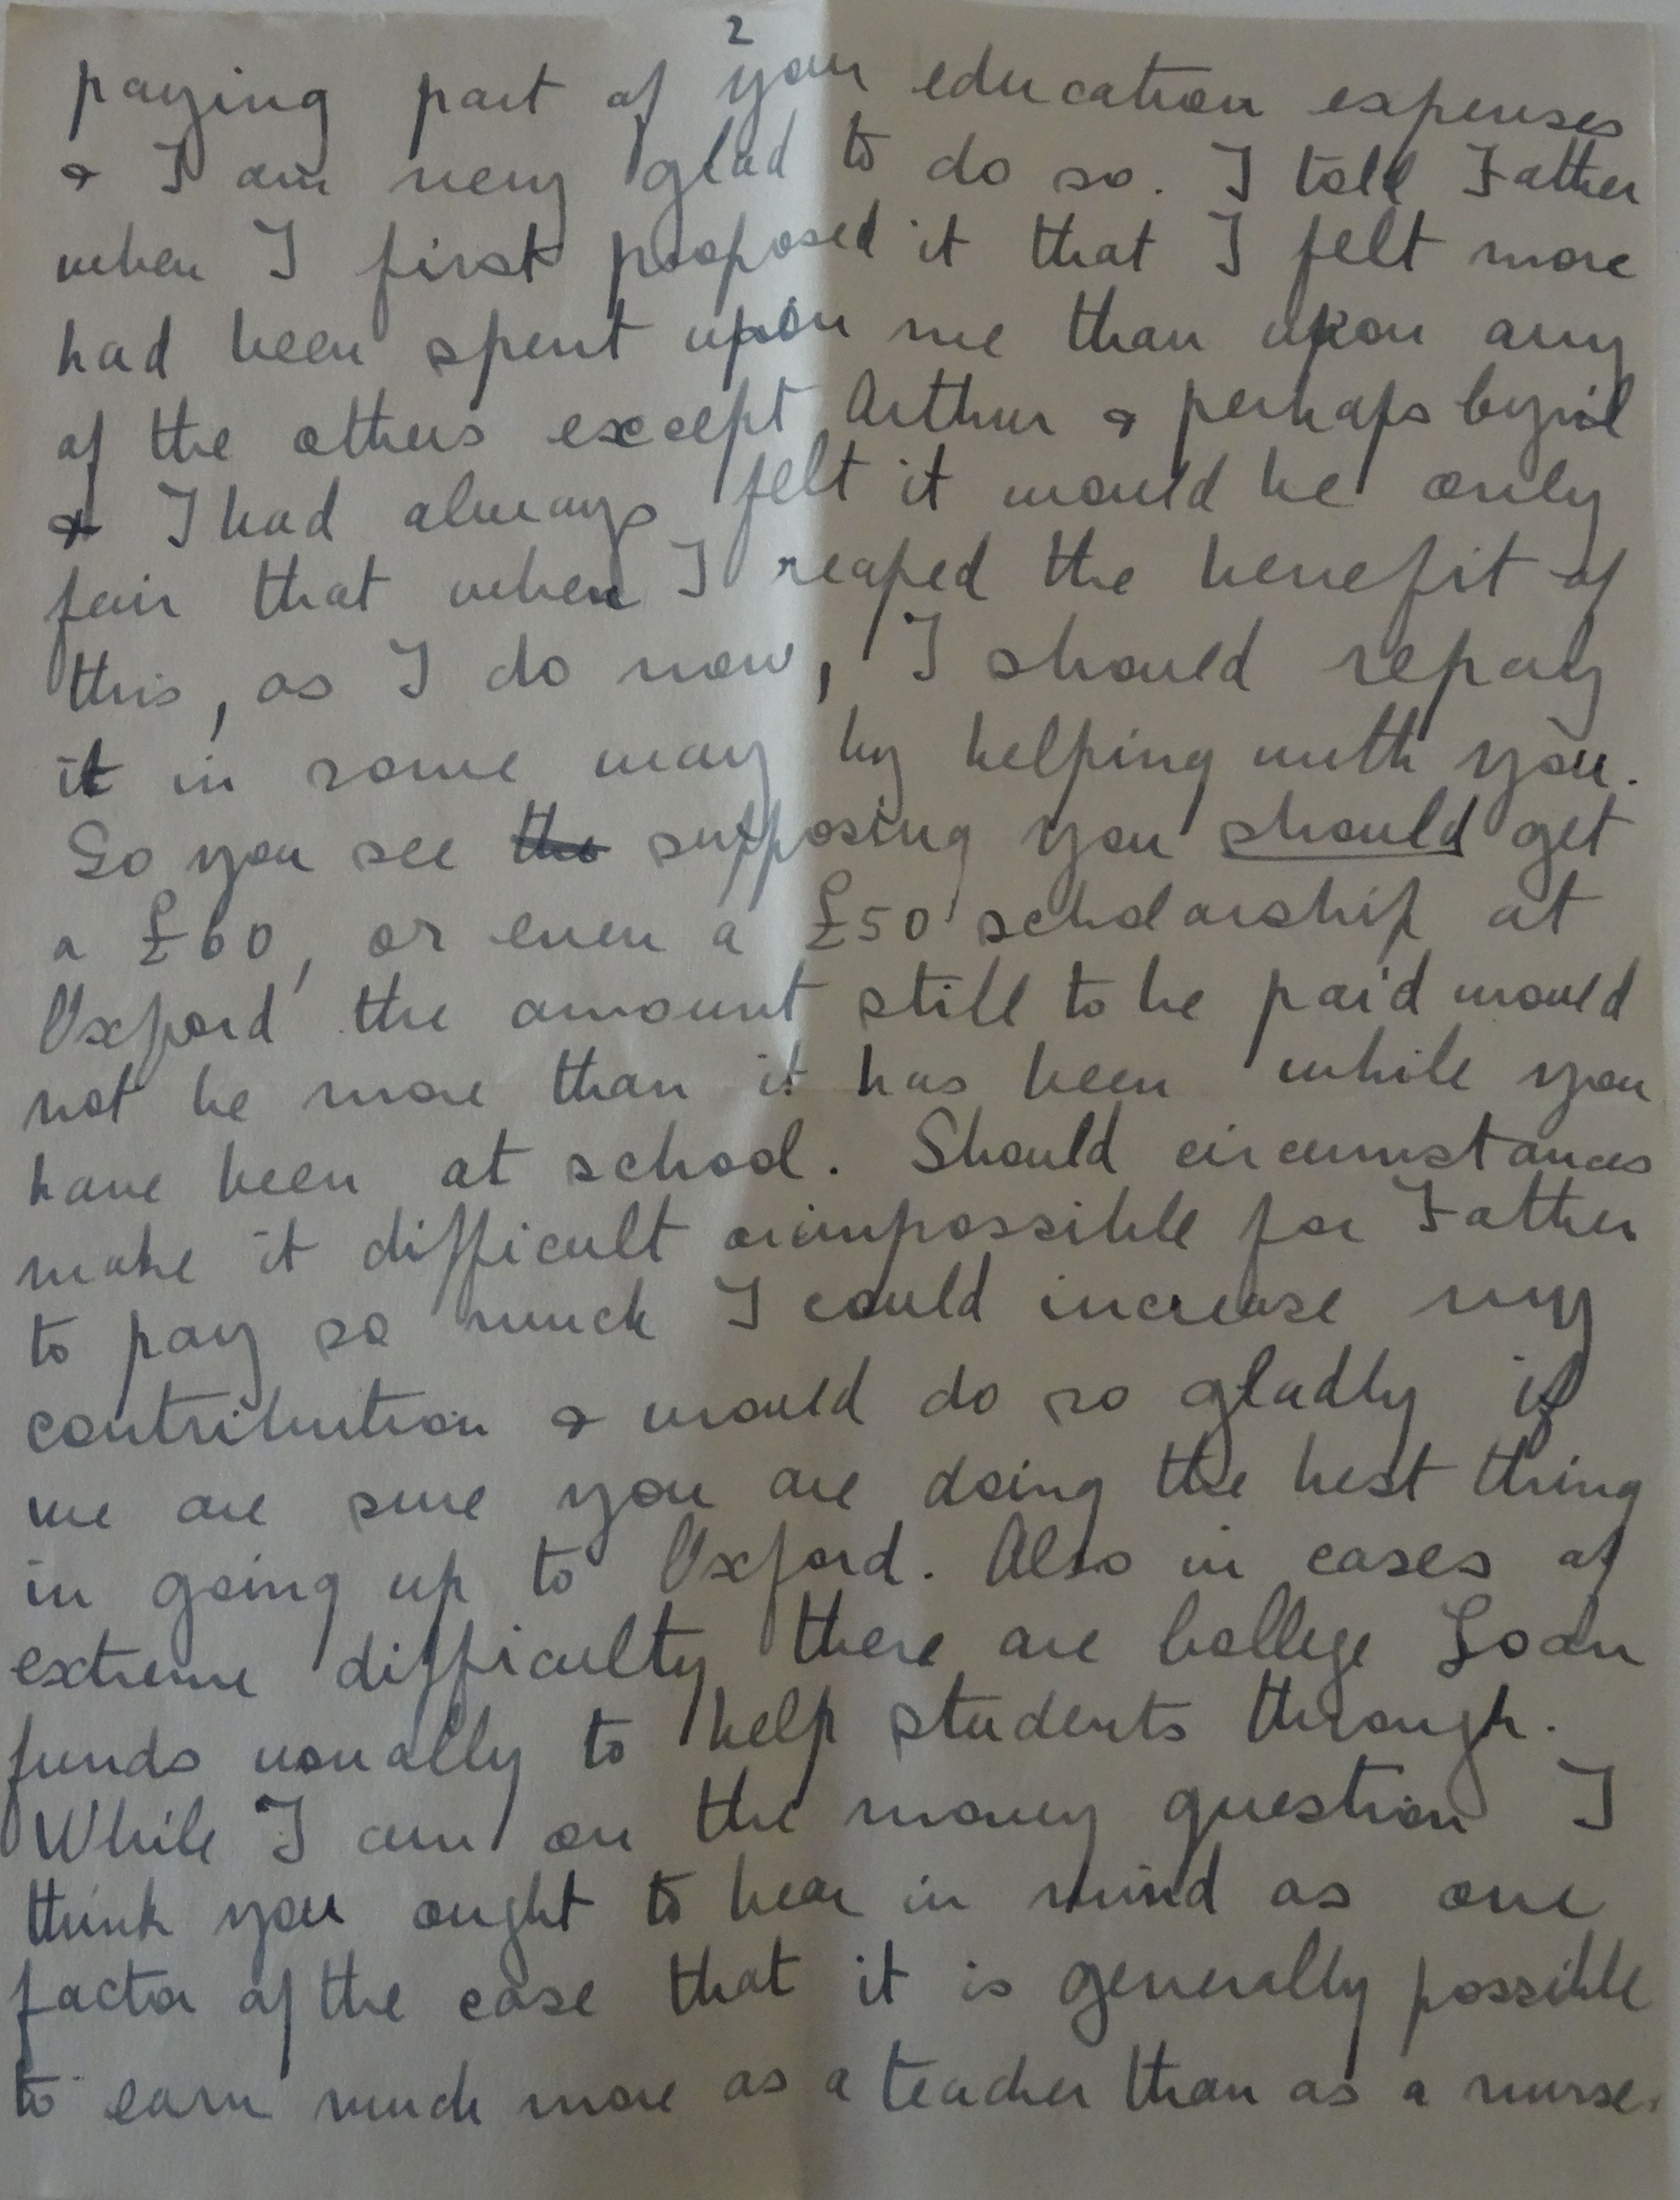 2
paying part of your education expenses
& I am very glad to do so. I told Father
when I first proposed it that I felt more
had been spent upon me than upon any
of the others except Arthur & perhaps Cyril
& I had always felt it would be only
fair that when I reaped the benefit of
this, as I do now, I should repay
it in some way by helping with you.
So you see the supposing you should get
a £60, or even a £50 scholarship at
Oxford the amount still to be paid would
not be more than it has been while you
have been at school. Should circumstances
make it difficult or impossible for Father
to pay so much I could increase my
contribution & would do so gladly if
we are sure you are doing the best thing
in going up to Oxford. Also in cases of
extreme difficulty there are College Loan
funds usually to help students through.
While I am on the money question I
think you ought to bear in mind as one
factor of the case that it is generally possible
to earn much more as a teacher than as a nurse.